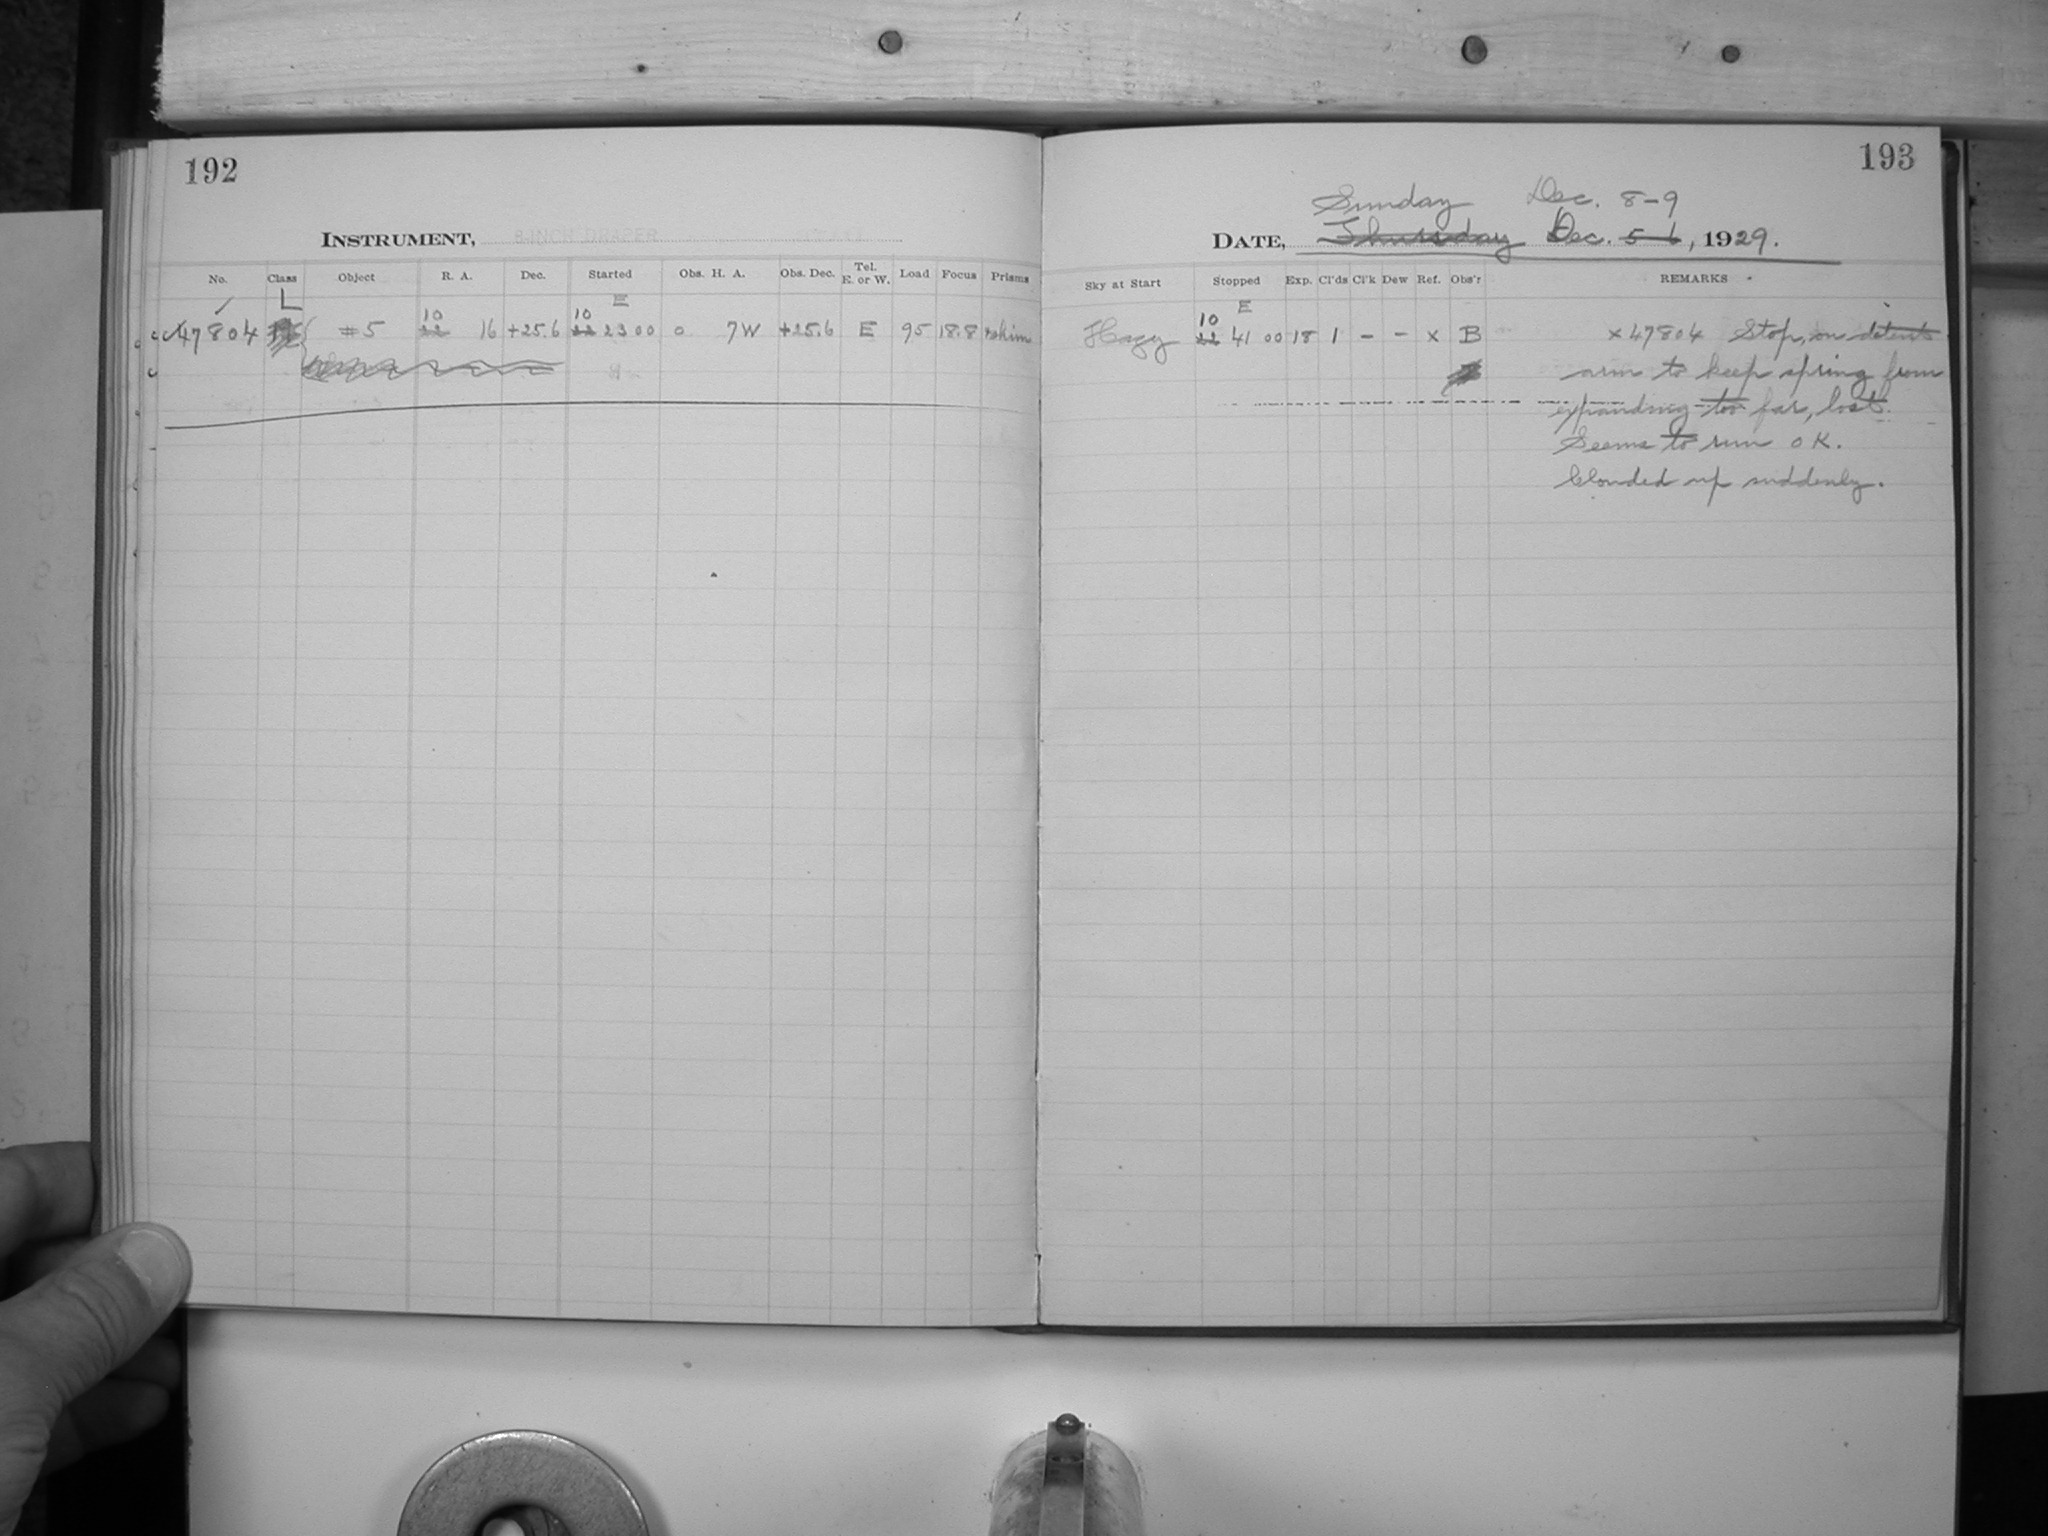 192
INSTRUMENT, 8-INCH DRAPER
No. Class Object R. A. Dec. Started Obs. H. A. Obs. Dec. Tel. E. or W. Load Focus Prisms
L 10 10 E
47804 #5 22 16 +25.6 22 23 00 0 7W +25.6 E 95 18.8
193
Sunday Dec. 8-9
DATE, Thursday Dec. 5-6, 1929.
Sky at Start Stopped Exp. Cl'ds Cl'k Dew Ref. Obs'r REMARKS
10 E
Hazy 22 41 00 18 1 - - x B x 47804 Stop, on detent
arm to keep spring from
expanding too far, lost.
Seems to run OK.
Clouded up suddenly.